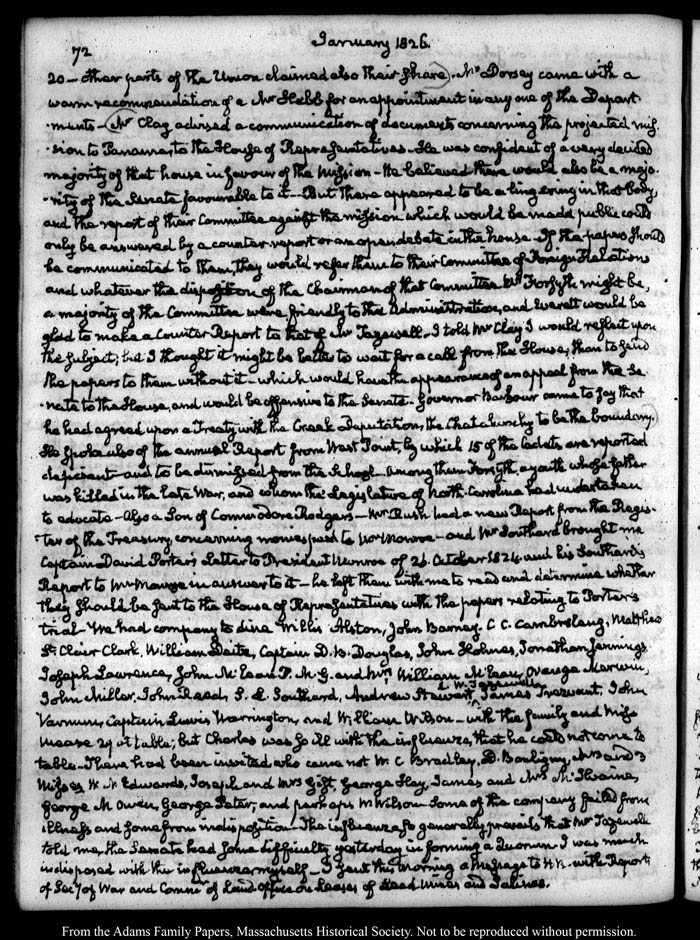 72
January 1826.
20 – other parts of the Union claimed also their share. Mr Dorsey came with a
warm recommendation of a Mr Hebb for an appointment in any one of the Depart-
ments – Mr Clay advised a communication of documents concerning the projected mis-
sion to Panama, to the House of Representatives – He was confident of a very decided
majority of that house in favour of the Mission – He believed there would also be a majo-
rity of the Senate favourable to it – But there appeared to be a lingering in that body,
and the report of their Committee against the mission which would be made public could
only be answered by a counter report or an open debate in the house – If the papers should
be communicated to them, they would refer them to their Committee of Foreign Relations
and whatever the disposition of the Chairman of that Committee Mr Forsyth might be,
a majority of the Committee were friendly to the Administration, and Everett would be
glad to make a Counter Report to that of Mr Tazewell – I told Mr Clay I would reflect upon
the subject; but I thought it might be better to wait for a call from the House, than to send
the papers to them without it – which would have the appearance of an appeal from the Se-
nate to the House, and would be offensive to the Senate – Governor Barbour came to say that
he had agreed upon a Treaty with the Creek Deputation, the Chatahouchy to be the boundary.
He spoke also of the annual Report from West Point, by which 15 of the Cadets are reported
deficient and to be dismissed from the School – Among them Forsyth, a youth whose father
was killed in the late War, and whom the Legislature of North-Carolina had undertaken
to educate – Also a Son of Commodore Rodgers – Mr Rush had a new Report from the Regis-
ter of the Treasury, concerning monies paid to Mr Monroe – and Mr Southard brought me
Captain David Porter's Letter to President Monroe of 21. October 1824 and his Southard's
Report to Mr Monroe in answer to it – he left them with me to read and determine whether
they should be sent to the House of Representatives with the papers relating to Porter's
trial – We had company to dine Willis Alston, John Barney, C. C. Cambreleng, Matthew
St Clair Clark, William Deitz, Captain D. B. Douglas, John Holmes, Jonathan Jennings,
Joseph Lawrence, John McLean P. M. G. and Mrs William McLean, Orange Merwin,
L. W. Tazewell
John Miller, John Reed, S. L. Southard, Andrew Stewart, James Trezvant, John
Varnum, Captain Lewis Warrington, and William Wilson – with the family and Miss
Mease 24 at table; but Charles was so ill with the influenza, that he could not come to
table – There had been invited who came not W. C. Bradley, D. Bouligny, Mrs and 3
Misses H. W. Edwards, Joseph and Mrs Gist, George Hay, James and Mrs McIlvaine,
George M. Owen, George Peter, and perhaps W Wilson. Some of the company failed from
illness and some from indisposition – The influenza so generally prevails that Mr Tazewell
told me, the Senate had some difficulty yesterday in forming a Quorum. I was much
indisposed with the influenza myself – I sent this morning a Message to H. R. with Report
of Secy of War and Commr of Land Office on Leases of Lead Mines and Salines.
From the Adams Family Papers, Massachusetts Historical Society. Not to be reproduced without permission.